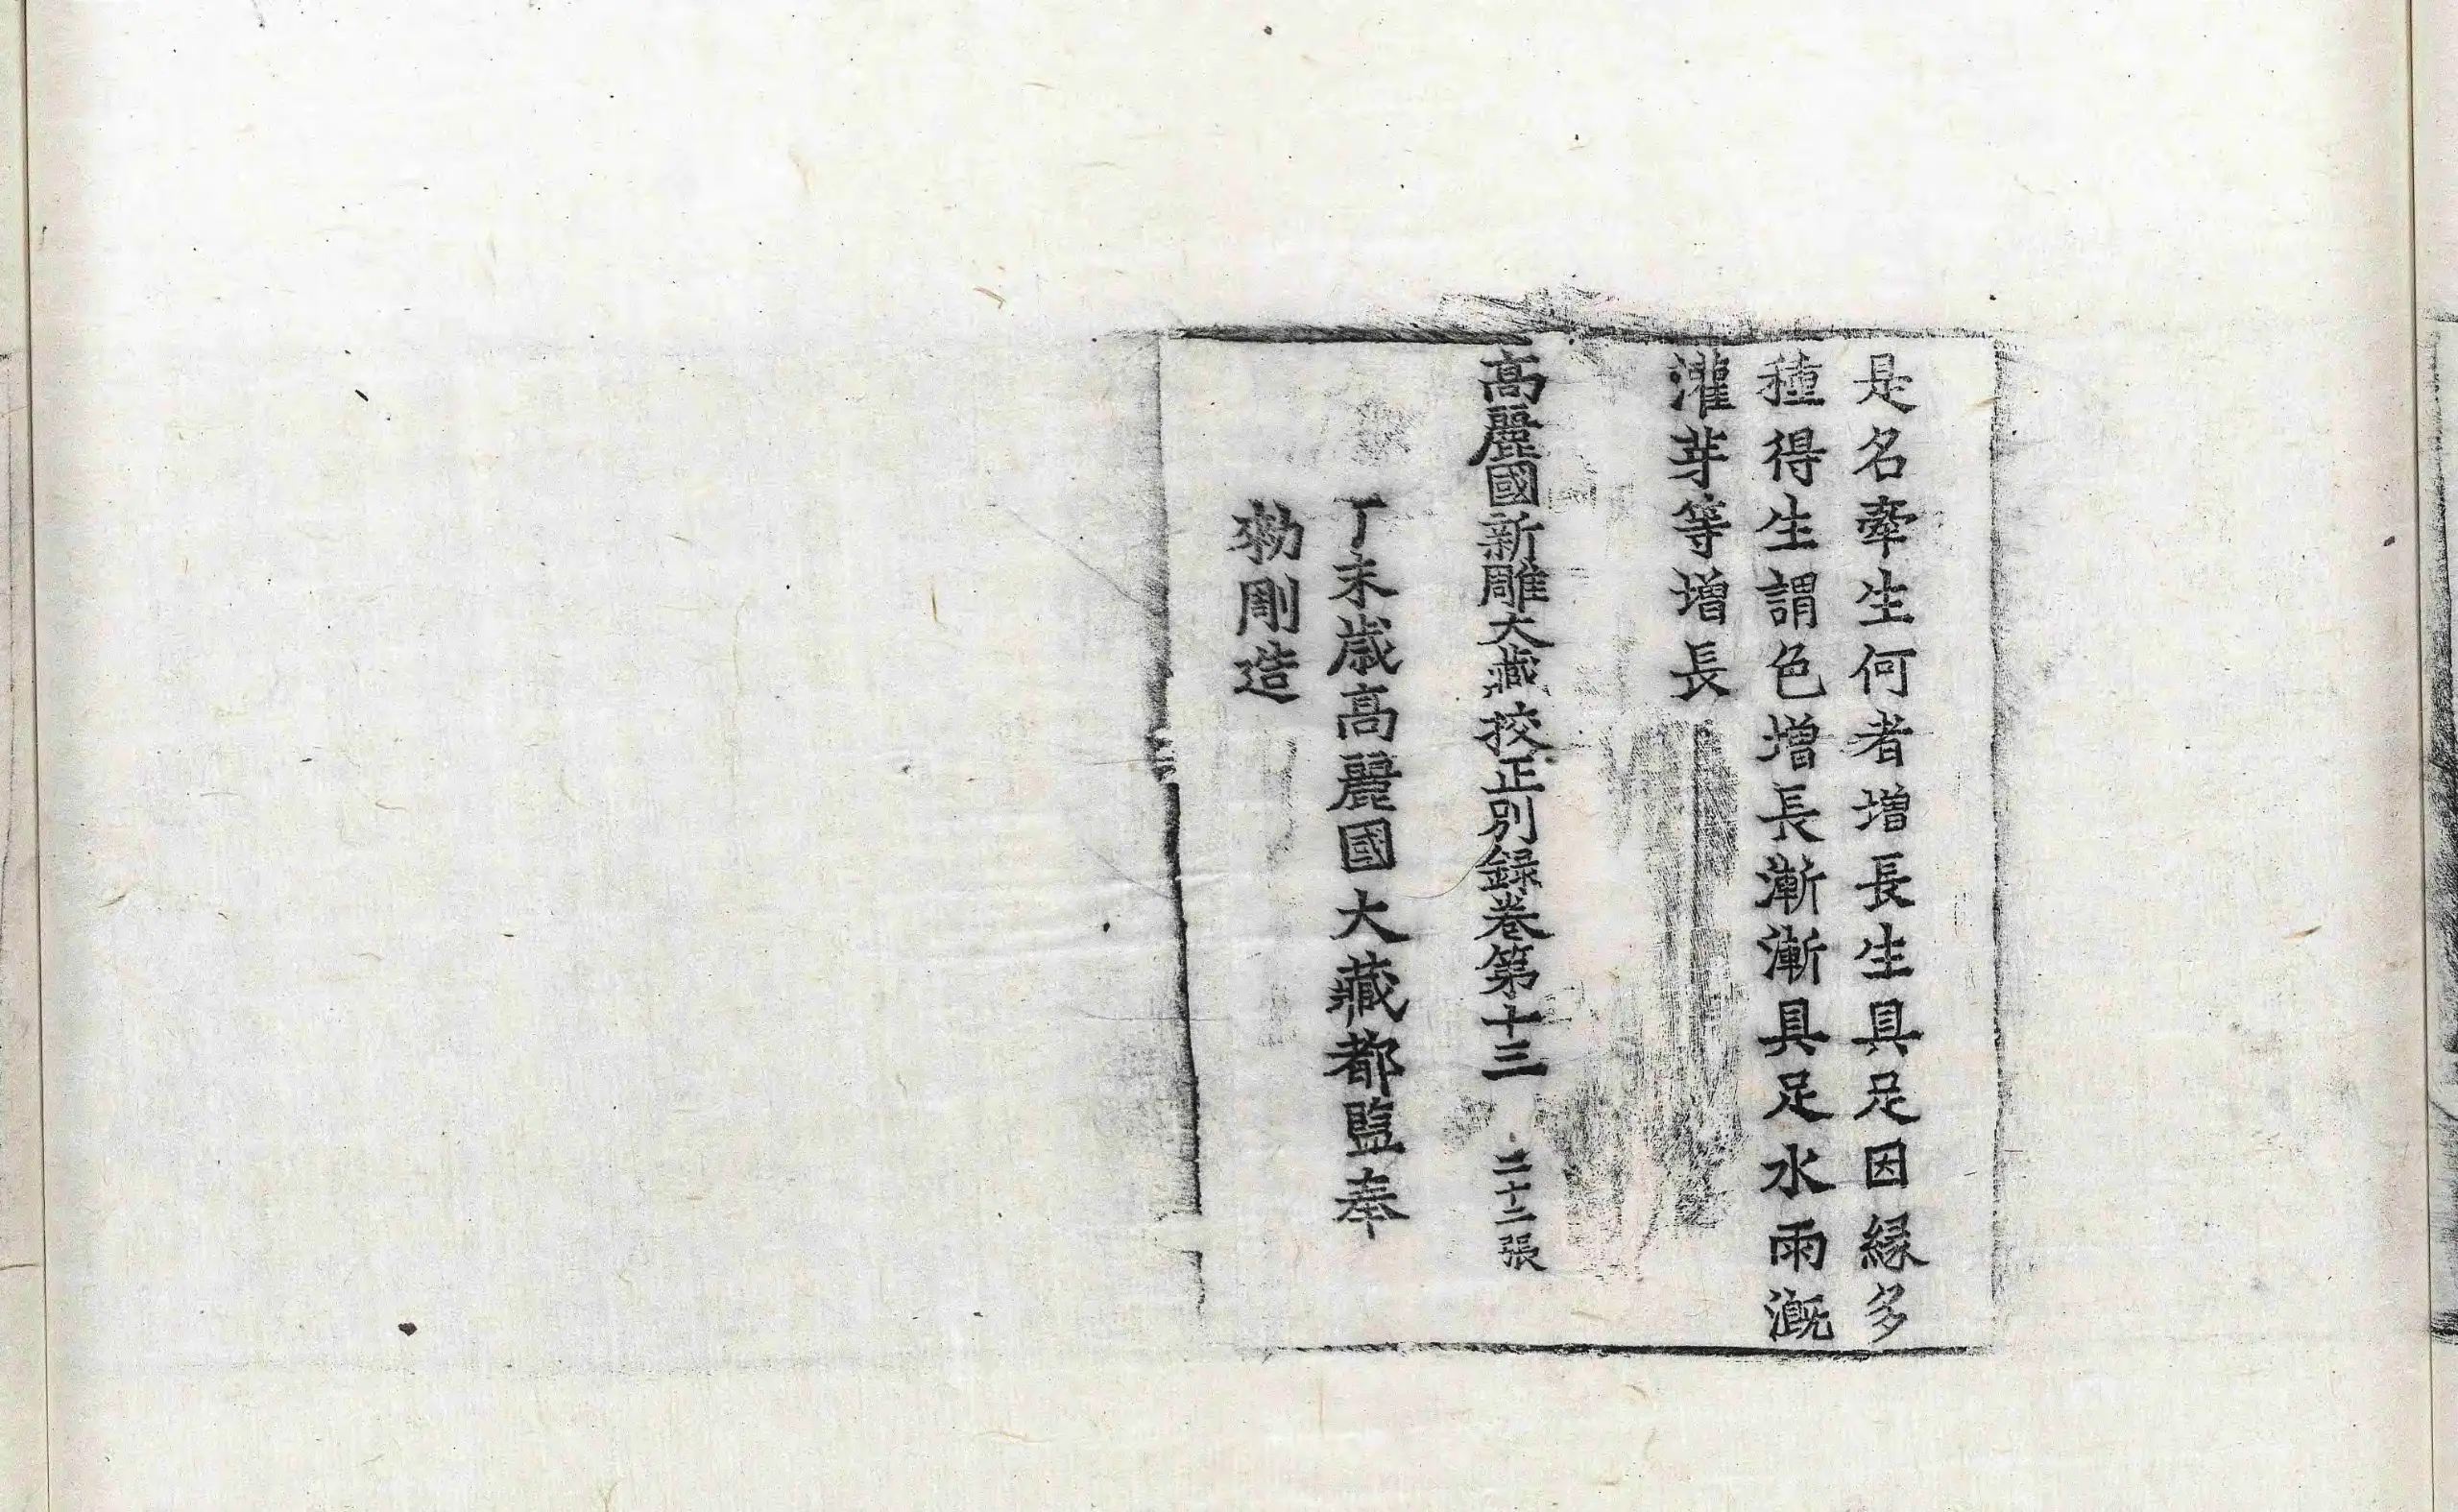 是名牽生何者增長生具足因緣多
種得生謂色增長漸漸具足水雨漑
灌芽等增長
高麗國新雕大藏挍正別錄卷第十三 二十二張
丁未歲高麗國大藏都監奉
勅彫造